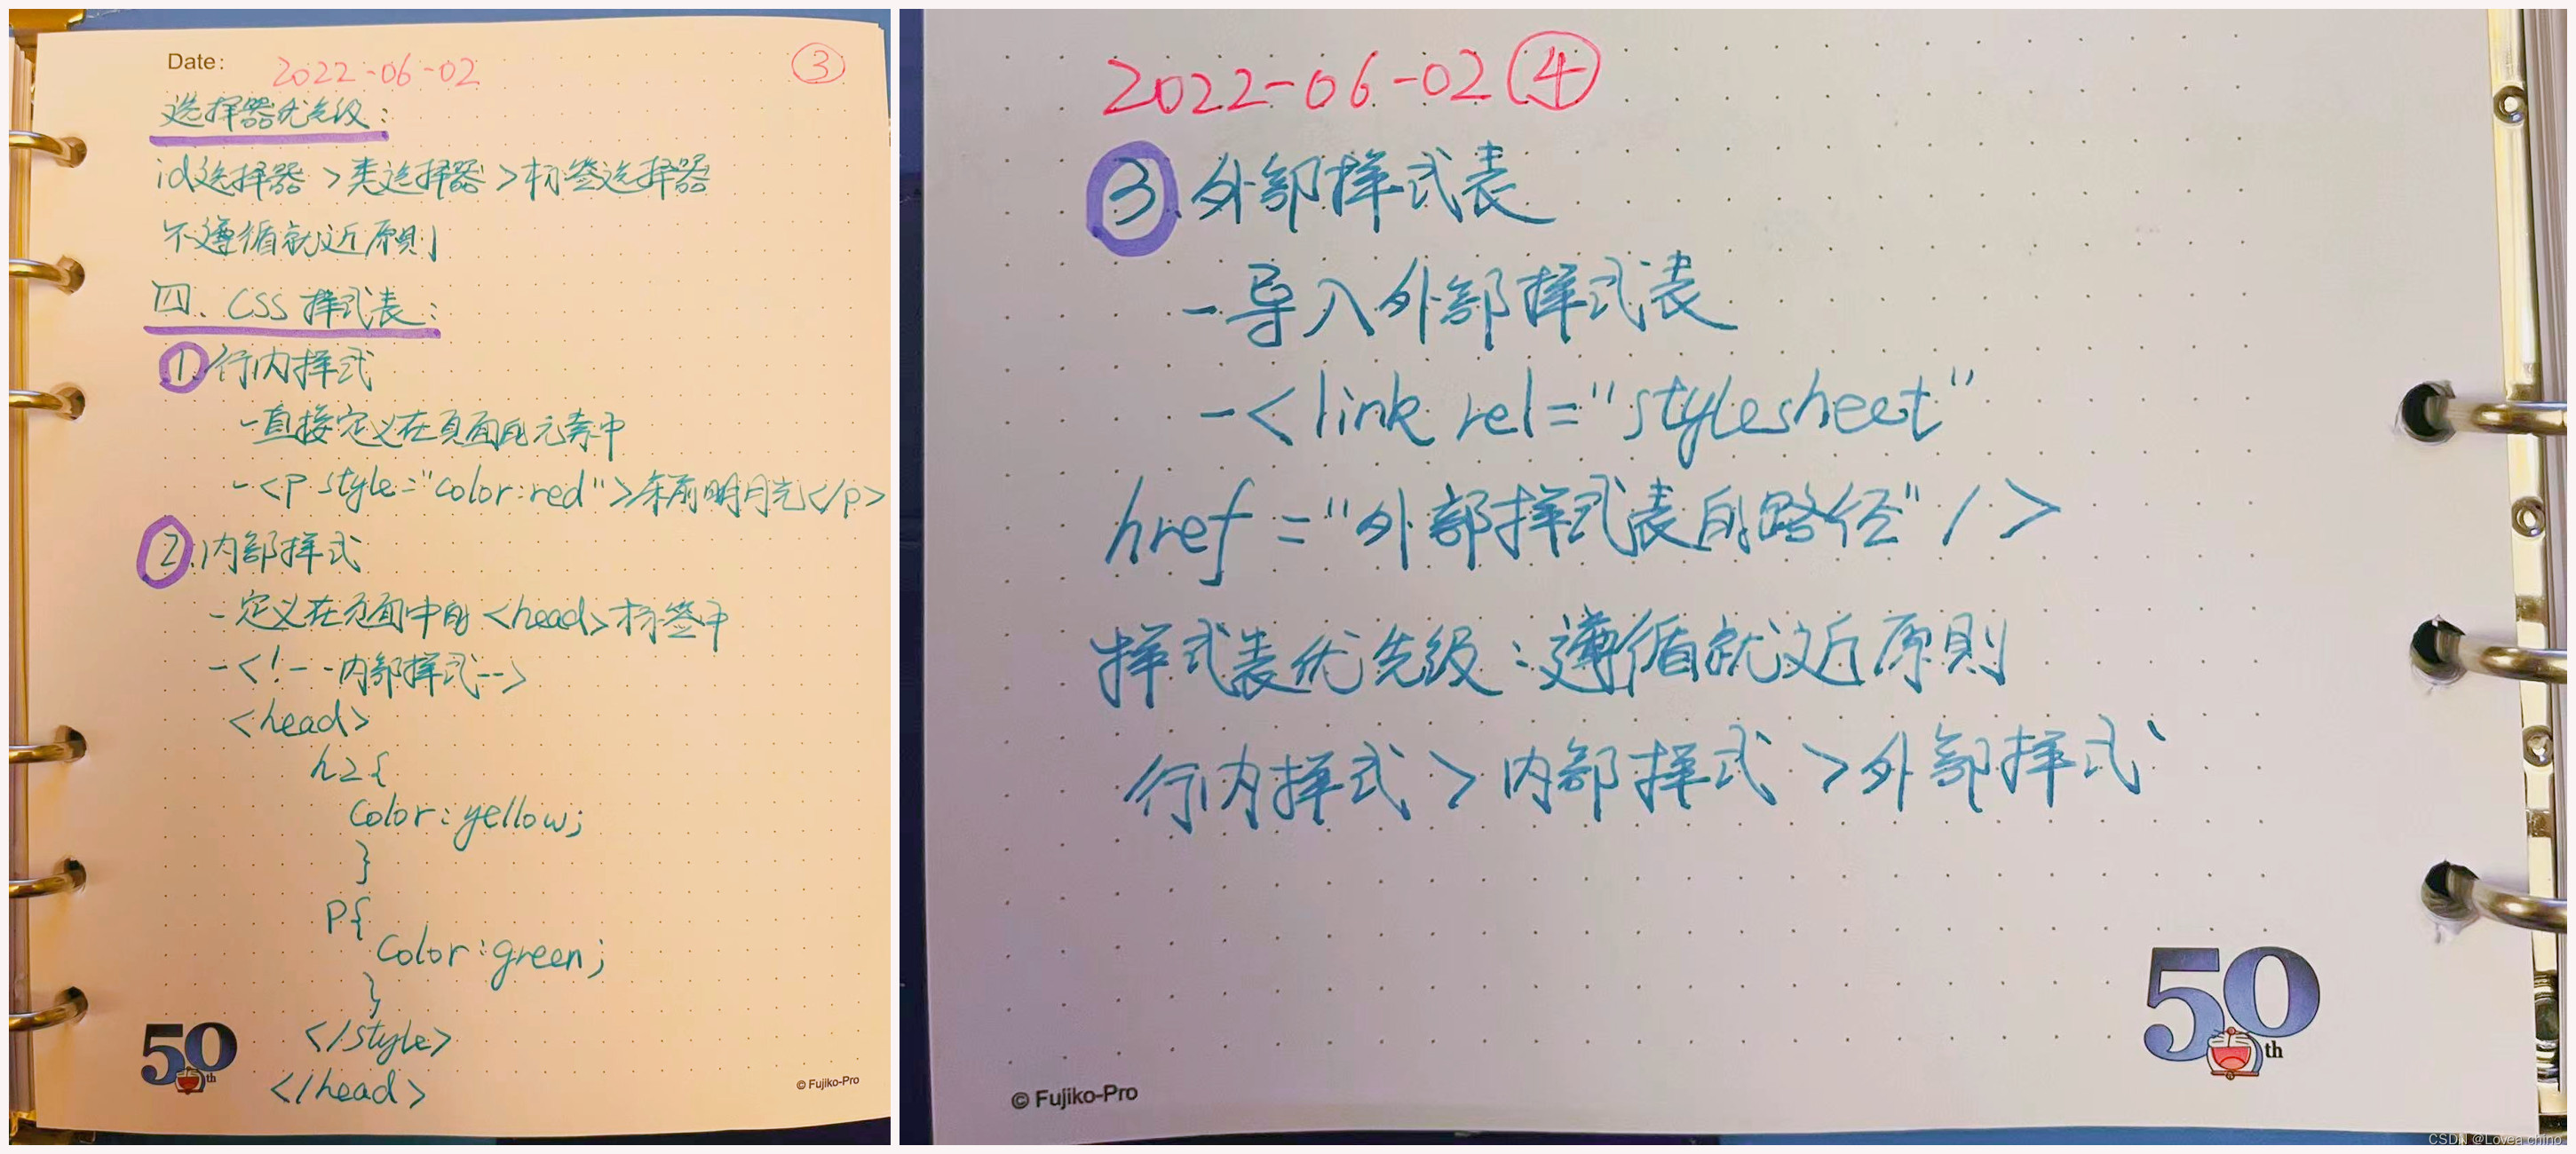 Date: 2022-06-02 ③
选择器优先级:
id选择器 > 类选择器 > 标签选择器
不遵循就近原则
四、CSS 样式表:
①.行内样式
-直接定义在页面的元素中
-<p style="color:red">床前明月光</p>
②.内部样式
-定义在页面中的<head>标签中
-<!--内部样式-->
<head>
h2{
color:yellow;
}
p{
color:green;
}
</style>
</head>
50th
© Fujiko-Pro
2022-06-02 ④
③.外部样式表
-导入外部样式表
-<link rel="stylesheet"
href="外部样式表的路径" />
样式表优先级:遵循就近原则
行内样式 > 内部样式 > 外部样式
50th
© Fujiko-Pro
CSDN @Lovea chino